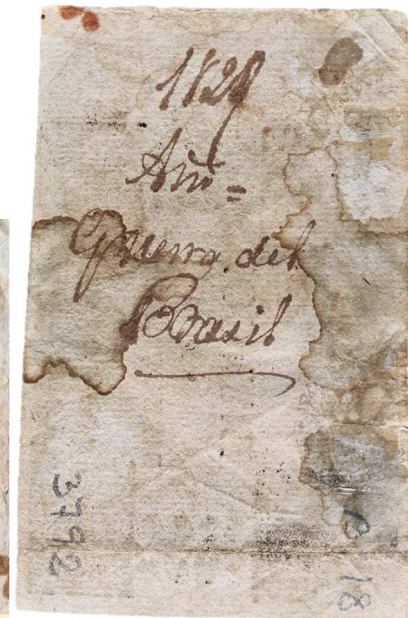 Año=
Guerra del
Brasil
3792
18